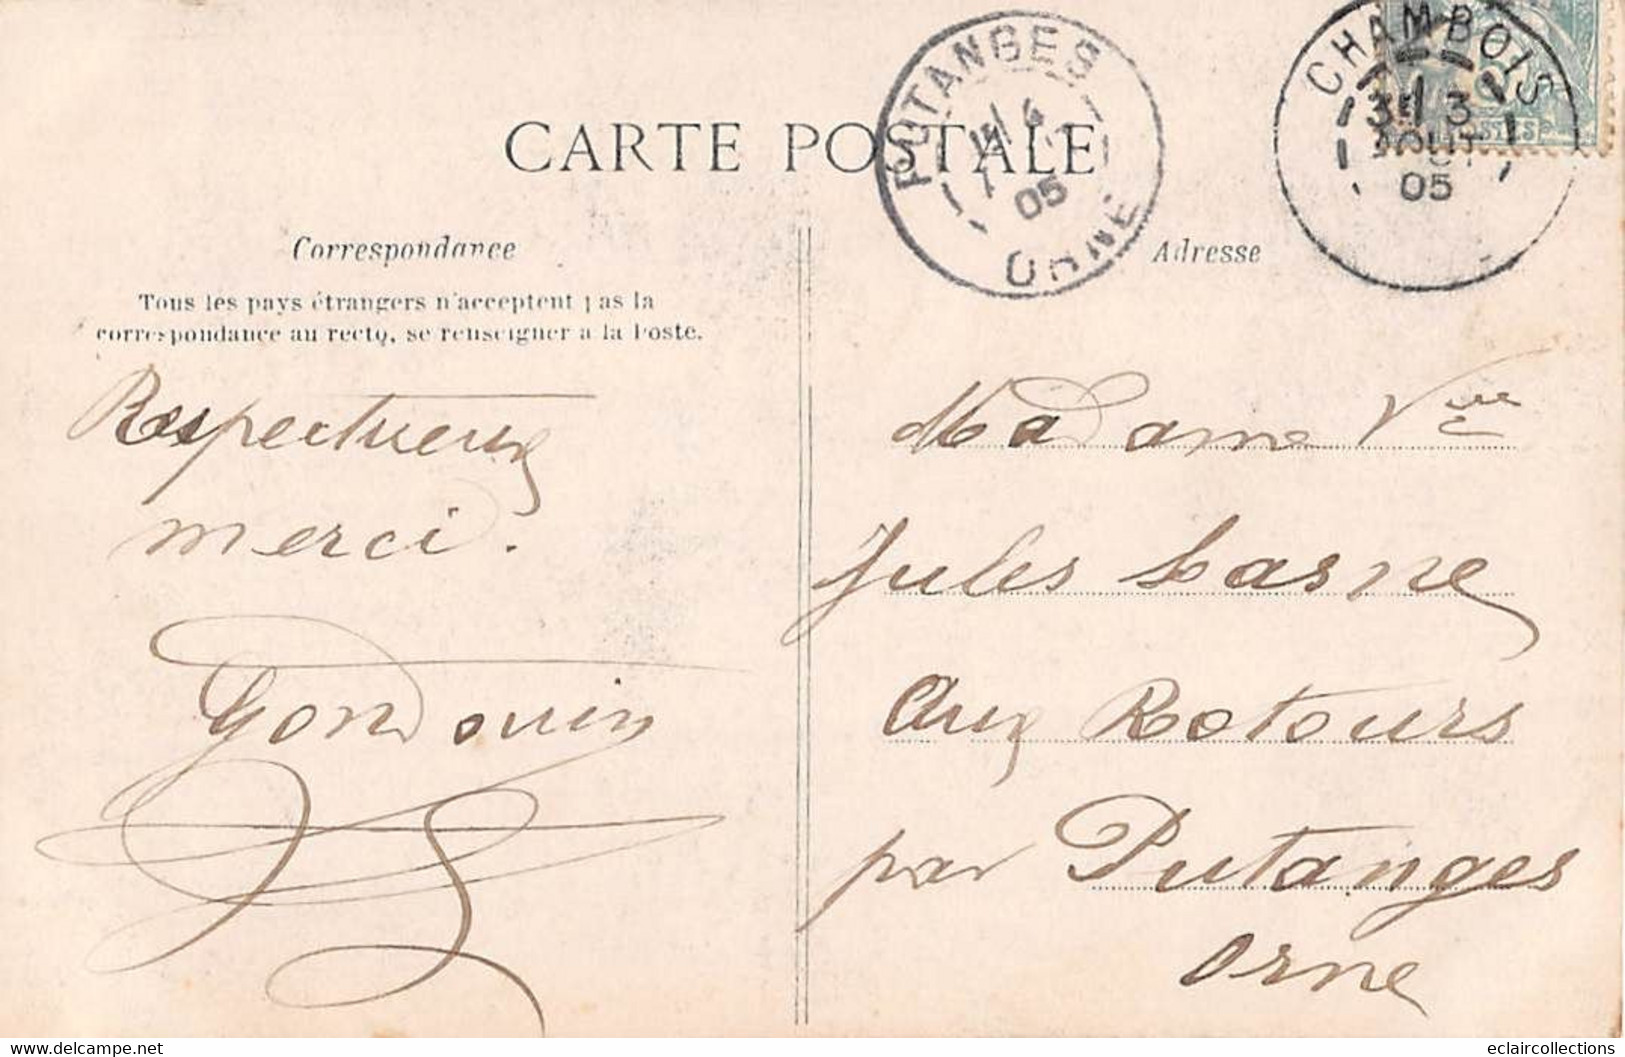 CARTE POSTALE
PUTANGES
05
ORNE
CHAMBOIS
3 3
AOUT
05
Correspondance
Adresse
Tous les pays étrangers n'acceptent pas la
correspondance au recto, se renseigner à la Poste.
Respectueux
merci.
Gondouin
Madame Vve
Jules Lasne
Aux Rotours
par Putanges
Orne
delcampe.net
eclaircollections